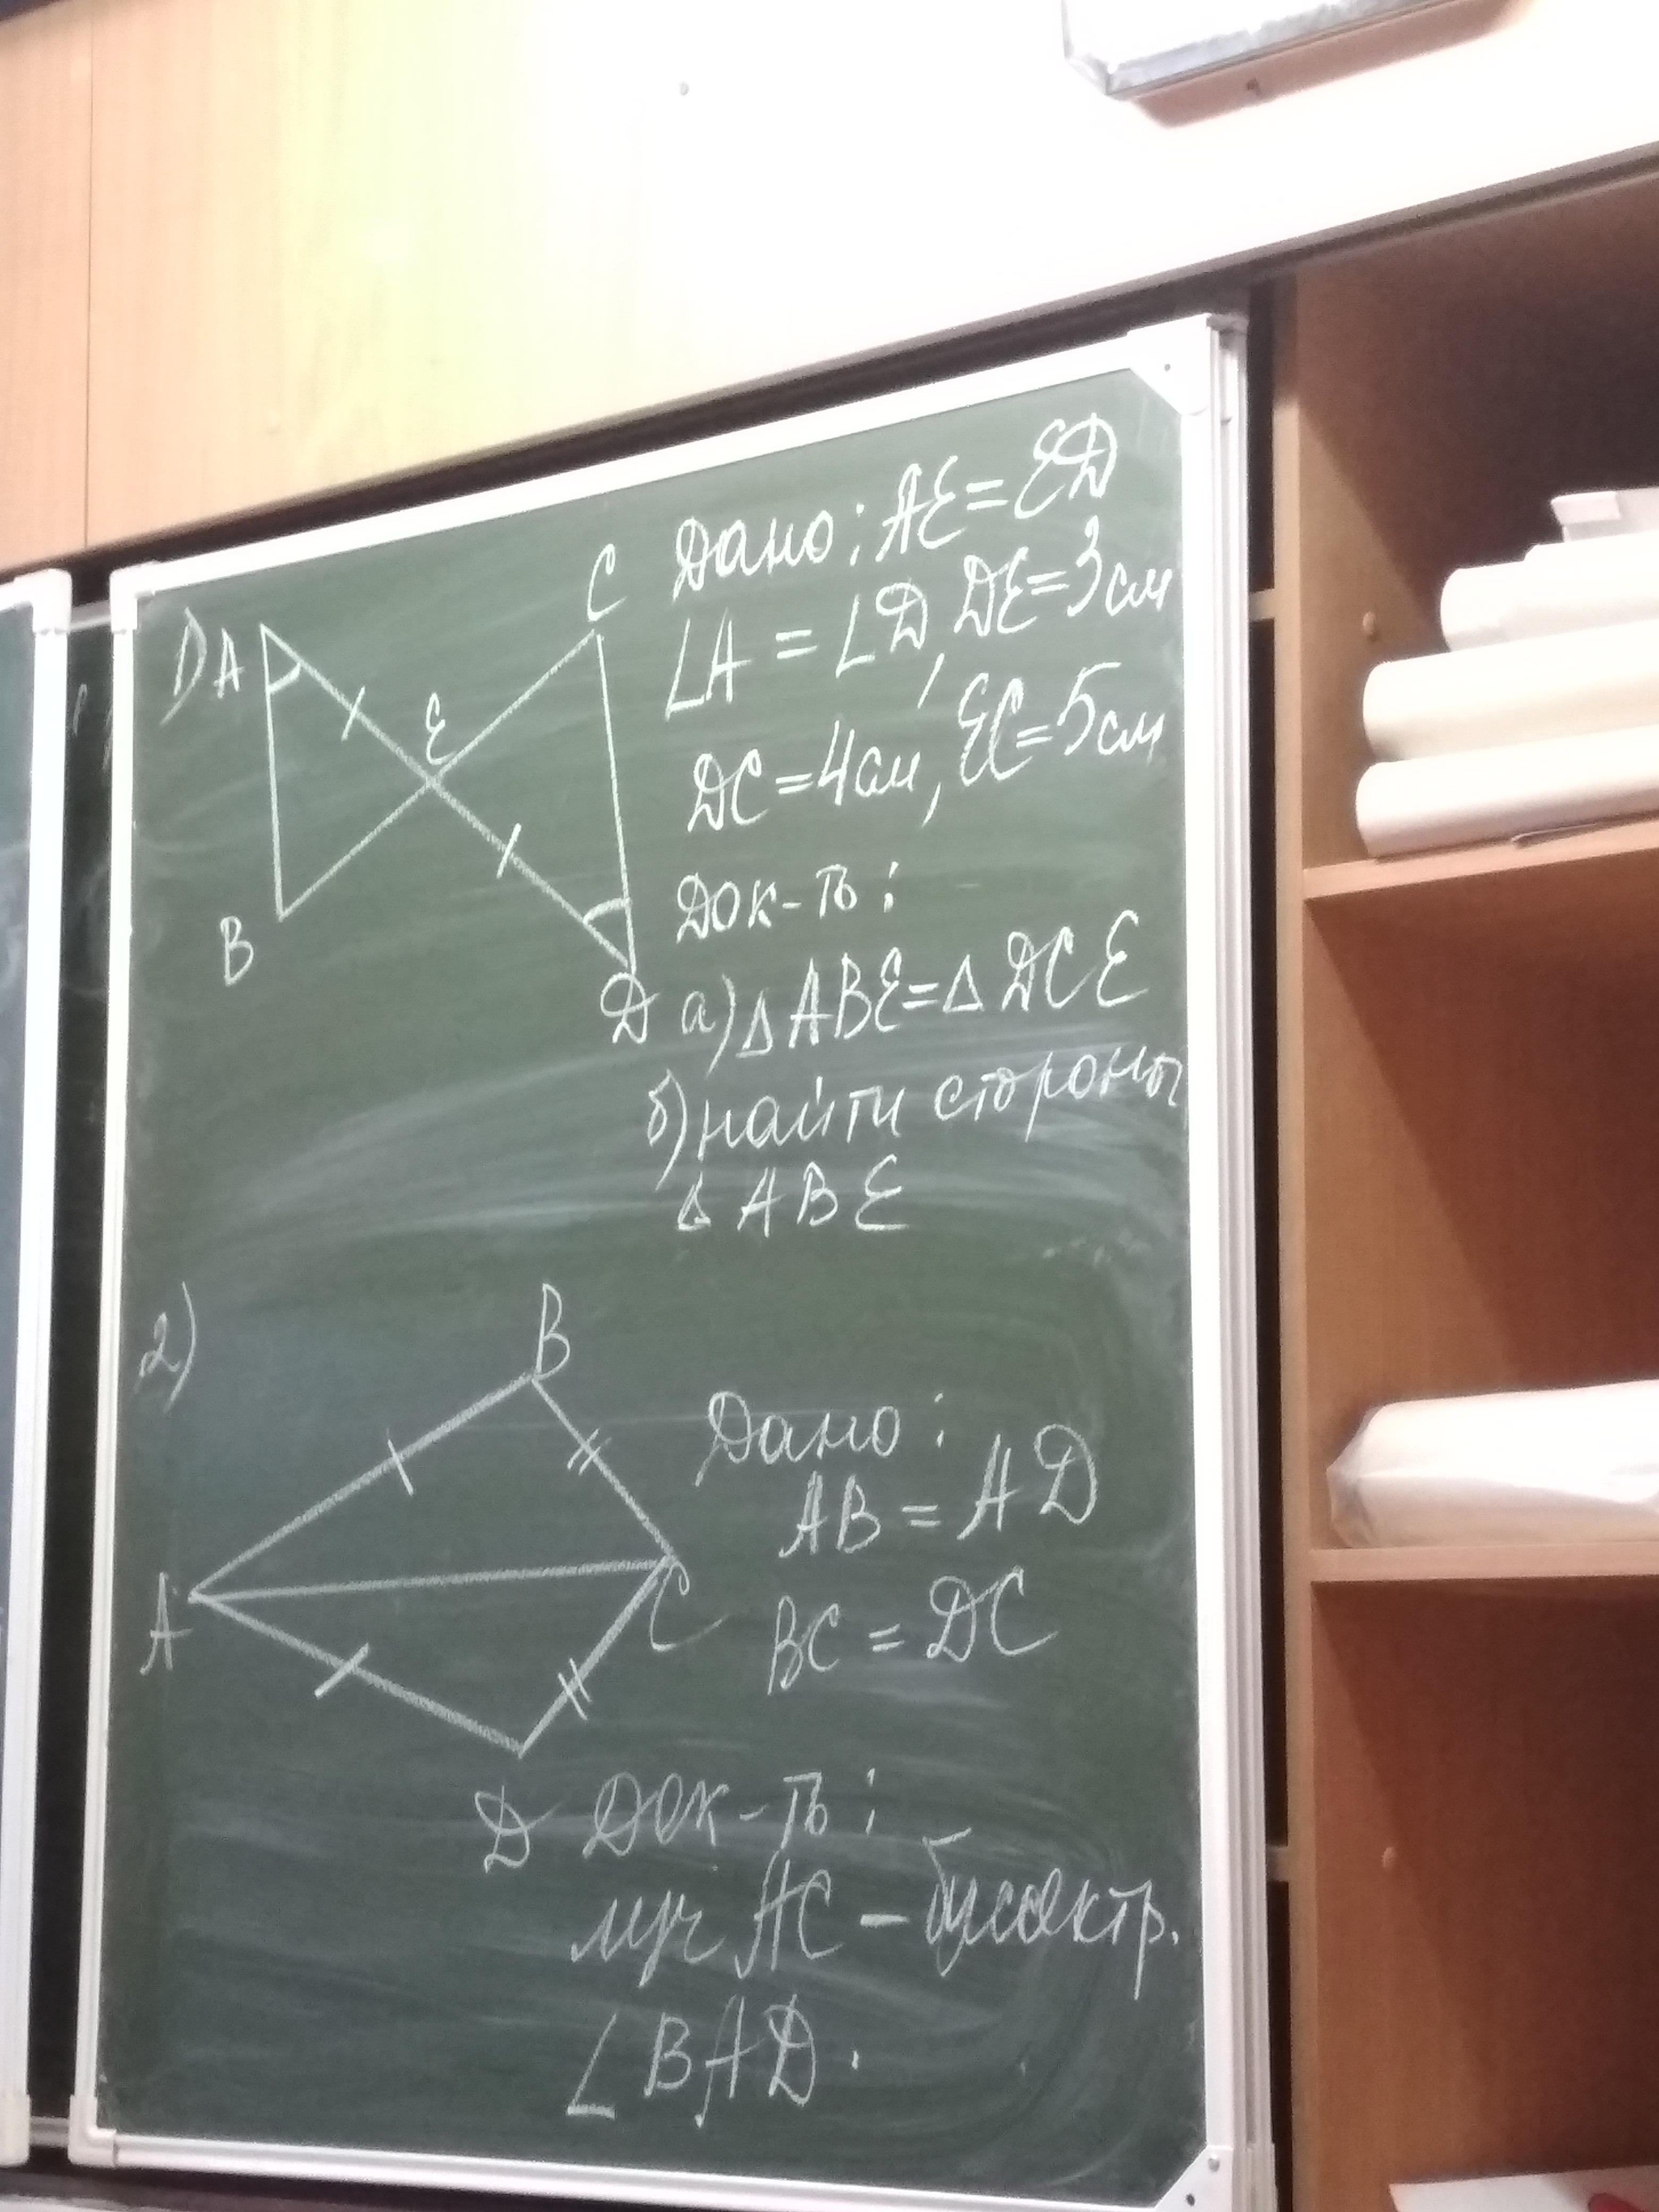 1)
A
E
C
B
D
Дано: AE = ED
∠A = ∠D, DE = 3 см
DC = 4 см, EC = 5 см
Док-ть:
а) △ABE = △DCE
б) найти стороны
△ABE
2)
B
A
C
D
Дано:
AB = AD
BC = DC
Док-ть:
луч AC – биссектр.
∠BAD.